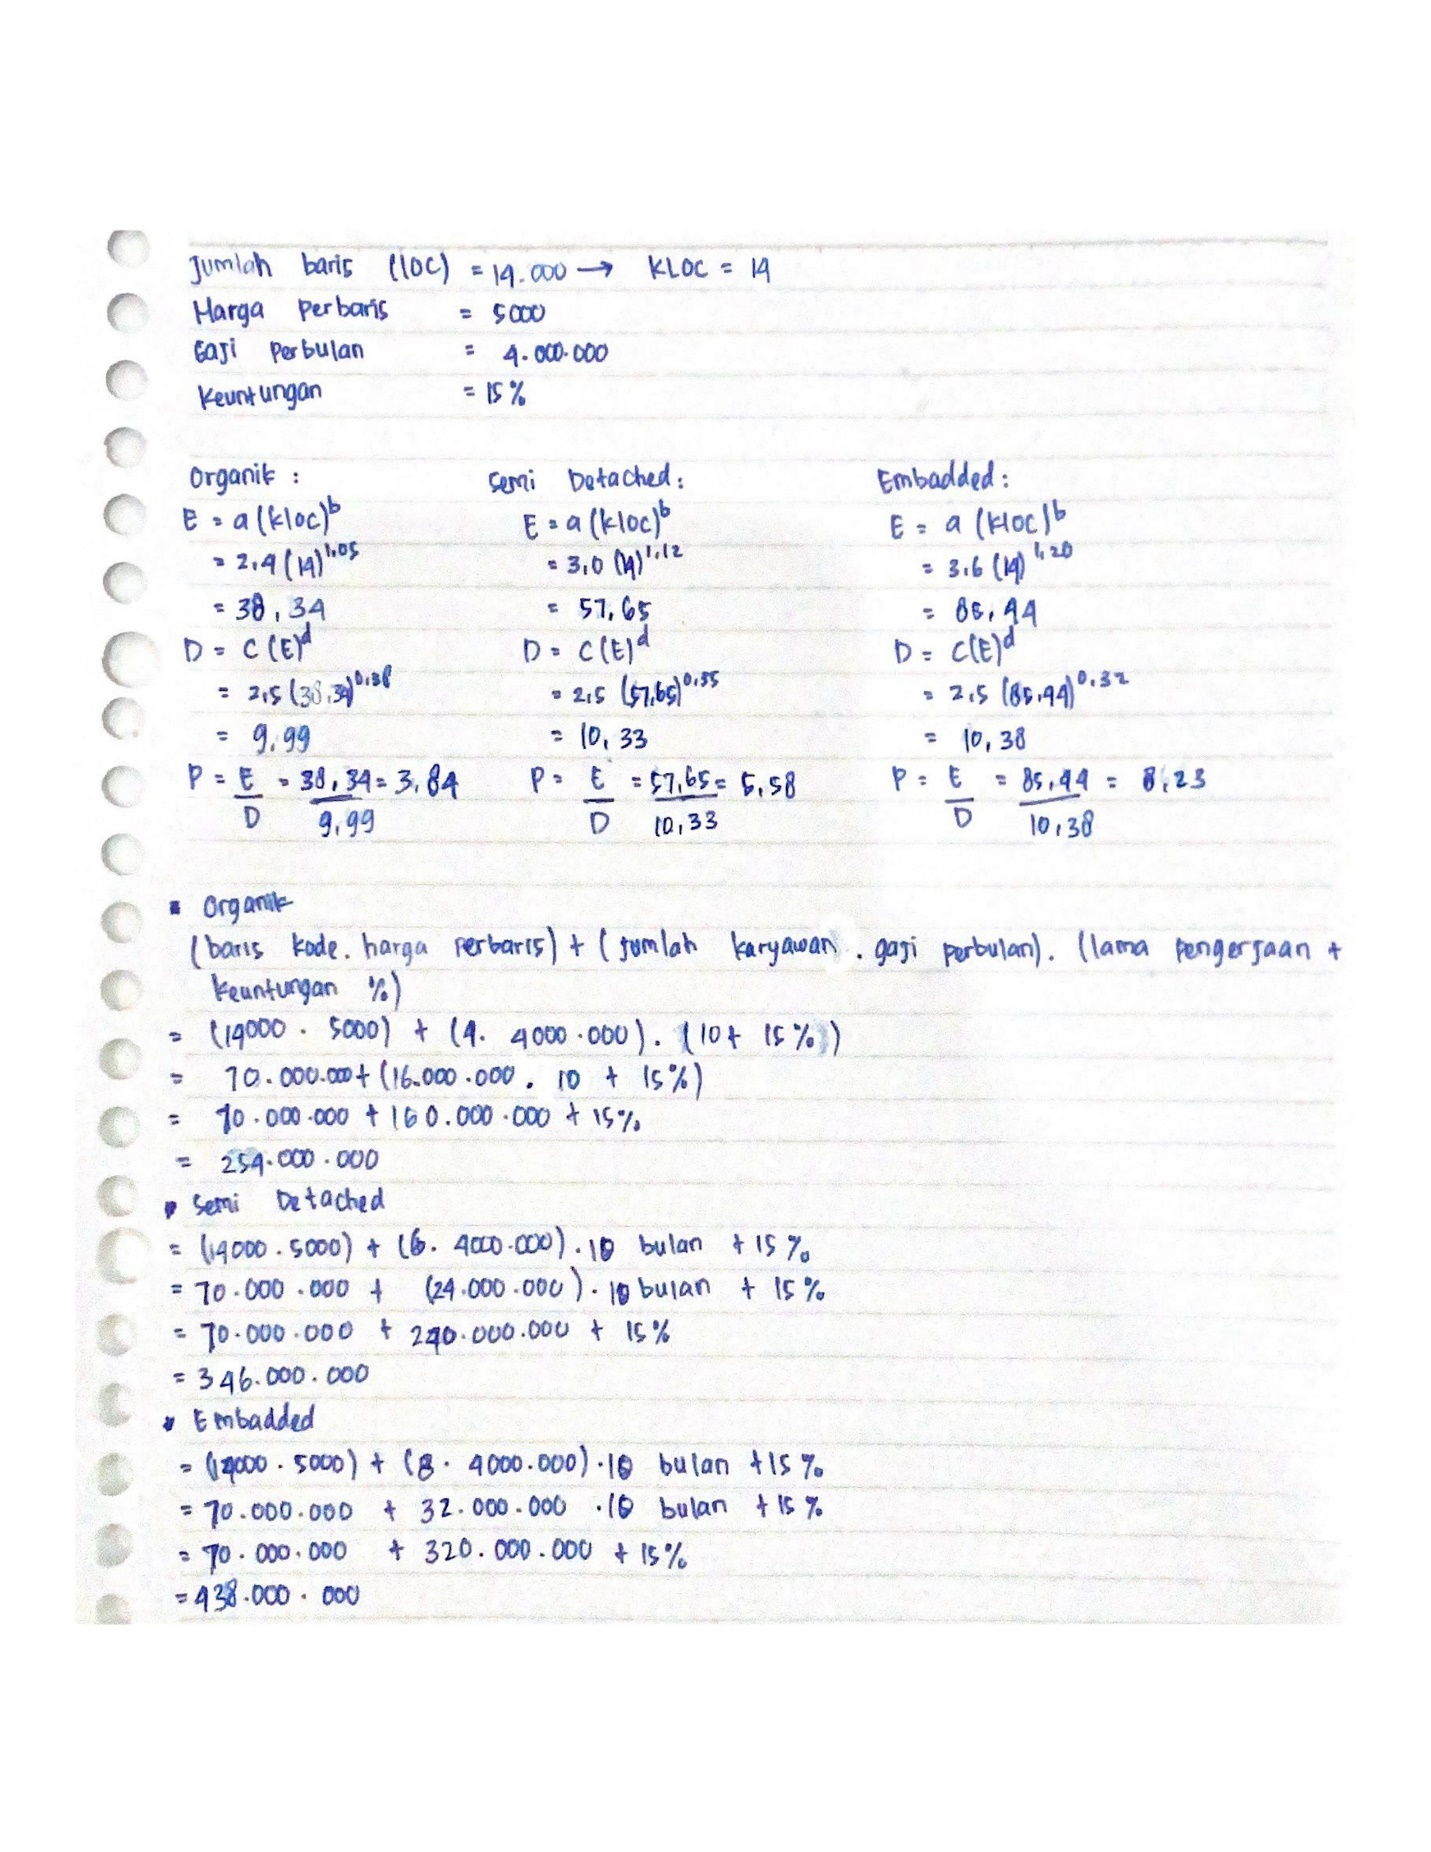 Jumlah baris (LOC) = 14.000 → KLOC = 14
Harga Perbaris = 5000
Gaji Perbulan = 4.000.000
Keuntungan = 15%
Organik :
E = a (kloc)^b
= 2,4 (14)^1,05
= 38,34
D = C (E)^d
= 2,5 (38,34)^0,38
= 9,99
P = E/D = 38,34/9,99 = 3,84
Semi Detached :
E = a (kloc)^b
= 3,0 (14)^1,12
= 57,65
D = C (E)^d
= 2,5 (57,65)^0,35
= 10,33
P = E/D = 57,65/10,33 = 5,58
Embadded :
E = a (kloc)^b
= 3.6 (14)^1,20
= 85,44
D = C(E)^d
= 2,5 (85,44)^0,32
= 10,38
P = E/D = 85,44/10,38 = 8,23
▪ Organik
(baris kode. harga perbaris) + (jumlah karyawan . gaji perbulan). (lama pengerjaan +
keuntungan %)
= (14000 . 5000) + (4. 4000.000). (10 + 15%)
= 70.000.000 + (16.000.000 . 10 + 15%)
= 70.000.000 + 160.000.000 + 15%
= 254.000.000
▪ Semi Detached
= (14000 . 5000) + (6. 4000.000) . 10 bulan + 15%
= 70.000.000 + (24.000.000) . 10 bulan + 15%
= 70.000.000 + 240.000.000 + 15%
= 346.000.000
▪ Embadded
= (14000 . 5000) + (8 . 4000.000) . 10 bulan + 15%
= 70.000.000 + 32.000.000 . 10 bulan + 15%
= 70.000.000 + 320.000.000 + 15%
= 438.000.000